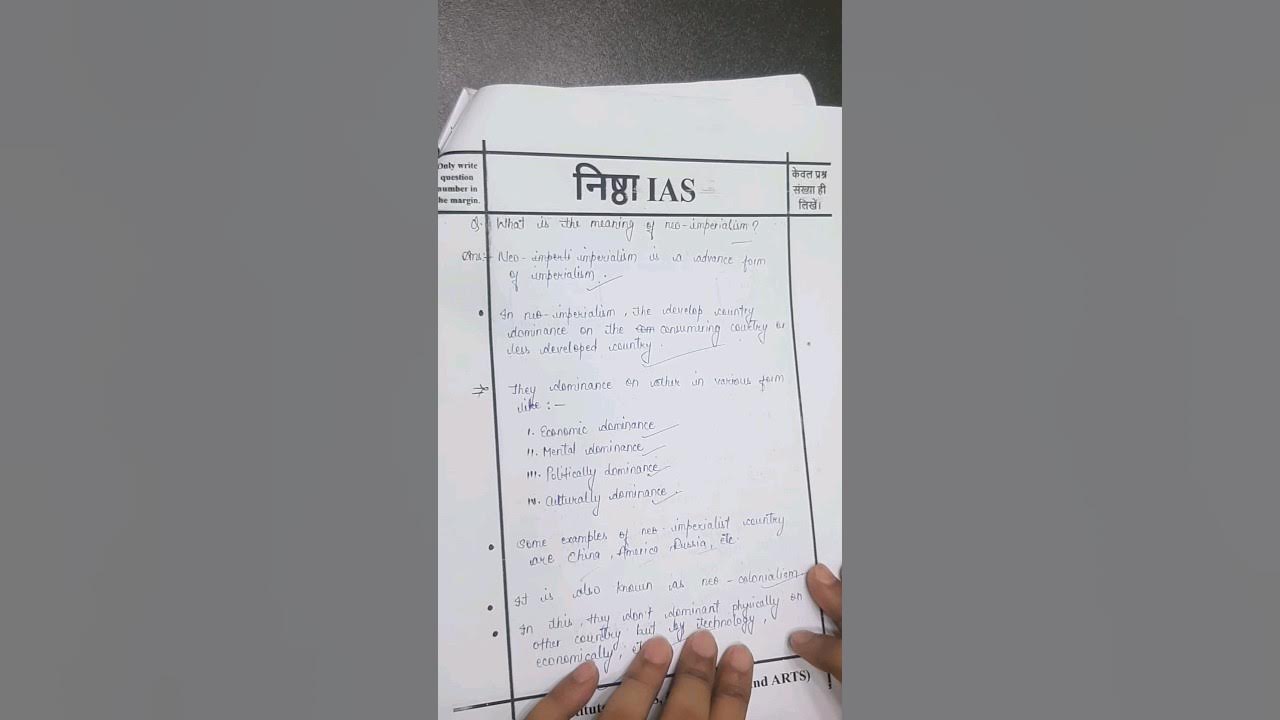 Only write
question
number in
he margin.
निष्ठा IAS
केवल प्रश्न
संख्या ही
लिखें।
Q. What is the meaning of neo-imperialism?
Ans:- Neo-imperli imperialism is a advance form
of imperialism.
• In neo-imperialism, the develop country
dominance on the com consumering country or
less developed country.
They dominance on other in various form
like :-
I. Economic dominance
II. Mental dominance
III. Politically dominance
IV. Culturally dominance
• Some examples of neo-imperialist country
are China, America Russia, etc.
• It is also known as neo-colonialism
• In this, they don't dominant physically on
other country but by technology,
economically,
nd ARTS)